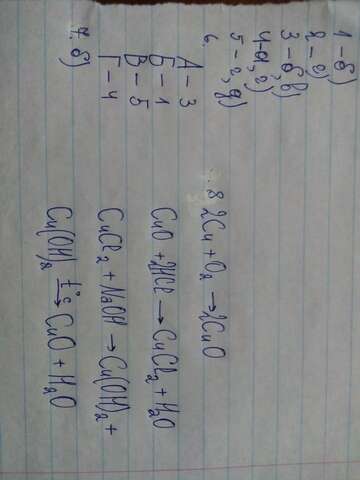 1 – б)
2 – г)
3 – б, в)
4 – а, г)
5 – г, д)
6.
А – 3
Б – 1
В – 5
Г – 4
7. б)
8 2Cu + O₂ → 2CuO
CuO + 2HCl → CuCl₂ + H₂O
CuCl₂ + NaOH → Cu(OH)₂ +
Cu(OH)₂ t°c→ CuO + H₂O